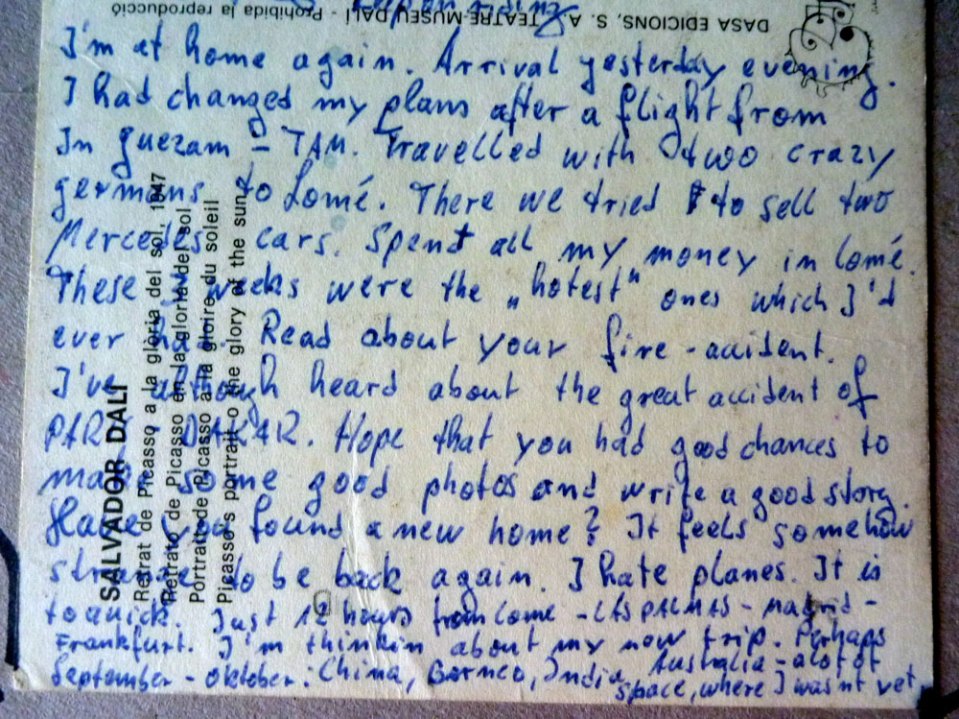 DASA EDICIONS, S. A. TEATRE-MUSEU DALÍ - Prohibida la reproducció
I'm at home again. Arrival yesterday evening.
I had changed my plans after a flight from
In guezam - TAM. Travelled with two crazy
germans to Lomé. There we tried to sell two
Mercedes cars. Spent all my money in Lomé.
These weeks were the „hotest" ones which I'd
ever had. Read about your fire-accident.
I've although heard about the great accident of
PARIS DAKAR. Hope that you had good chances to
make some good photos and write a good story
Have you found a new home? It feels somehow
strange to be back again. I hate planes. It is
to quick. Just 12 hours from Lome - LAS PALMAS - Madrid -
Frankfurt. I'm thinkin about my new trip. Perhaps
September - oktober: China, Borneo, India, Australia - a lot of
space, where I wasnt yet.
SALVADOR DALÍ
Retrat de Picasso a la glòria del sol, 1947
Retrato de Picasso en la gloria del sol
Portrait de Picasso à la gloire du soleil
Picasso's portrait o the glory of the sun